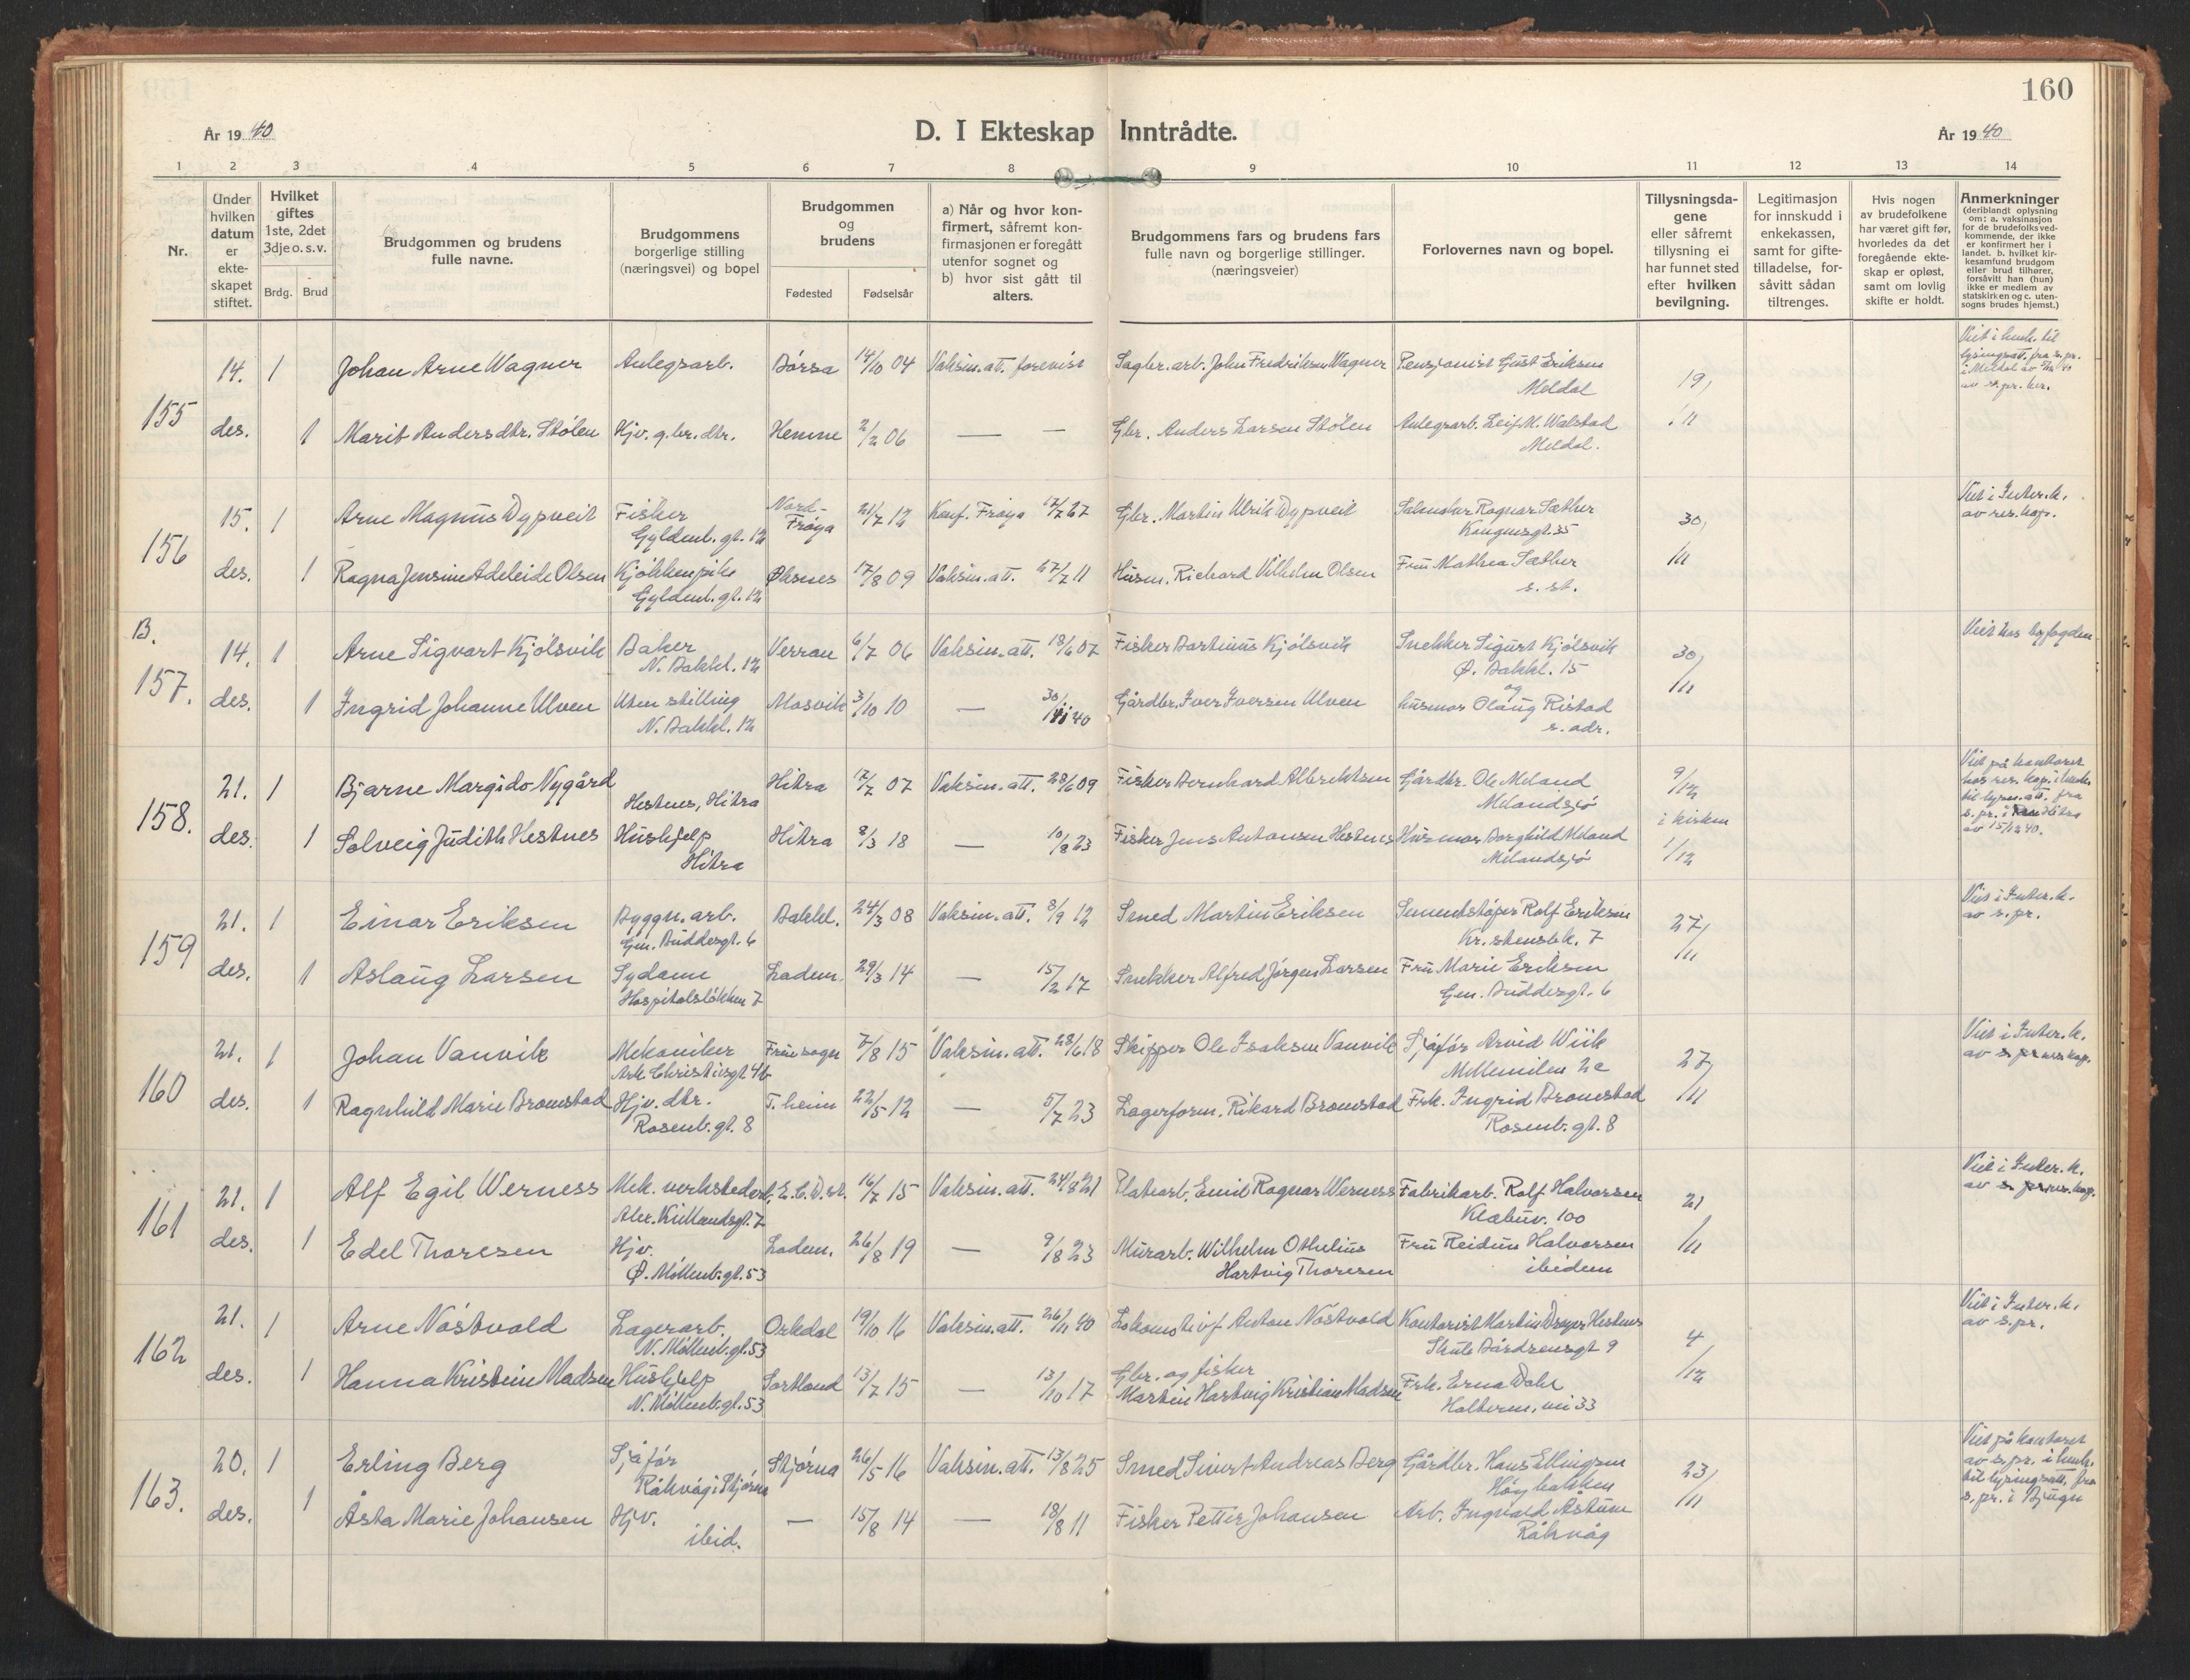 160
År 19 40
D. I Ekteskap Inntrådte.
År 19 40
1 2 3 4 5 6 7 8 9 10 11 12 13 14
Nr.
Under
hvilken
datum
er
ekte-
skapet
stiftet.
Hvilket
giftes
1ste, 2det
3dje o. s. v.
Brdg. Brud
Brudgommen og brudens
fulle navne.
Brudgommens
borgerlige stilling
(næringsvei) og bopel
Brudgommen
og
brudens
Fødested Fødselsår
a) Når og hvor kon-
firmert, såfremt kon-
firmasjonen er foregått
utenfor sognet og
b) hvor sist gått til
alters.
Brudgommens fars og brudens fars
fulle navn og borgerlige stillinger.
(næringsveier)
Forlovernes navn og bopel.
Tillysningsda-
gene
eller såfremt
tillysning ei
har funnet sted
efter hvilken
bevilgning.
Legitimasjon
for innskudd i
enkekassen,
samt for gifte-
tilladelse, for-
såvitt sådan
tiltrenges.
Hvis nogen
av brudefolkene
har været gift før,
hvorledes da det
foregående ekte-
skap er opløst,
samt om lovlig
skifte er holdt.
Anmerkninger
(deriblandt oplysning
om: a. vaksinasjon
for de brudefolks ved-
kommende, der ikke
er konfirmert her i
landet. b. hvilket kir-
kesamfund brudgom
eller brud tilhører,
forsåvitt han (hun)
ikke er medlem av
statskirken og c. uten-
sogns brudes hjemst.)
155
14. 1 Johan Arne Wagner Anlegsarb. Børsa 14/10 04 Vaksin. att. forevist Sagbr. arb. John Fredriksen Wagner Pensjonist Gust Eriksen
Meldal
19/11
Viet i henh. til
lysingsatt. fra s. pr.
i Meldal
des. 1 Marit Andersdtr. Stølen Hjv. g. br. dtr. Hemne 2/2 06 — — Gbr. Anders Larsen Stølen Anlegsarb. Leif M. Walstad
Meldal.
156
15. 1 Arne Magnus Dypveit Fisker
Gyldenl. gt. 12
Nord-
Frøya
21/7 12 Konf. Frøya 17/7 27 Gbr. Martin Ulrik Dypveit Ragnar Sæther
Kongensgt. 35
30/11
Viet i Inter. k.
av res. kap.
des. 1 Ragna Jensine Adeleide Olsen Kjøkkenpike
Gyldenl. gt. 12
Øksnes 17/8 09 Vaksin. att. 27/7 11 Husm. Richard Vilhelm Olsen Fru Mathea Sæther
s. st.
B.
157.
14. 1 Arne Sigvart Kjølsvik Baker
N. Bakkl. 12
Verran 6/7 06 Vaksin. att. 18/6 07 Fisker Bortinus Kjølsvik Snekker Sigurt Kjølsvik
Ø. Bakkl. 15
og
30/11
Viet hos byfogden
des. 1 Ingrid Johanne Ulven Uten stilling
N. Bakkl. 12
Mosvik 3/10 10 — 30/11 40 Gårdbr. Iver Iversen Ulven husmor Olaug Ristad
s. adr.
158.
21. 1 Bjarne Margido Nygård
Hestnes, Hitra
Hitra 17/7 07 Vaksin. att. 28/6 09 Fisker Bernhard Albrektsen Gårdbr. Ole Meland
Melandsjø
9/12
i kirken
1/12
Viet på kontoret
hos res. kap. i henh.
til lysn. att. fra
s. pr. i Hitra
av 15/12 40.
des. 1 Solveig Judith Hestnes Hushjelp
Hitra
Hitra 8/3 18 — 10/8 23 Fisker Jens Antonsen Hestnes Husmor Borghild Meland
Melandsjø
159
21. 1 Einar Eriksen Byggn. arb.
Gen. Buddesgt. 6
Bakkl. 24/3 08 Vaksin. att. 8/9 12 Smed Martin Eriksen Sementstøper Rolf Eriksen
Kr. stensbk. 7
27/11
Viet i Inter. k.
av s. pr.
des. 1 Aslaug Larsen Sydame
Hospitalsløkken 7
Ladem. 29/3 14 — 15/2 17 Snekker Alfred Jørgen Larsen Fru Marie Eriksen
Gen. Buddesgt. 6
160
21. 1 Johan Vanvik Mekaniker
Ark. Christiesgt 4b
Frue sogn 7/8 15 Vaksin. att. 28/6 18 Skipper Ole Isaksen Vanvik Sjåfør Arvid Wiik
Mellemilen 2c
27/11
Viet i Inter. k.
av s. pr. res. kap.
des. 1 Ragnhild Marie Bromstad Hjv. dtr.
Rosenb. gt. 8
T. heim 22/5 12 — 5/7 23 Lagerform. Rikard Bromstad Frk. Ingrid Bromstad
Rosenb. gt. 8
161
21. 1 Alf Egil Werness Mek. verkstedarb.
Alex. Kiellandsgt. 7
16/7 15 Vaksin. att. 24/8 21 Platearb. Emil Ragnar Werness Fabrikarb. Rolf Halvorsen
Klæbuv. 100
21/11
Viet i Inter. k.
av s. pr. res. kap.
des. 1 Edel Thoresen Hjv.
Ø. Møllenb. gt. 53
Ladem. 26/8 19 — 9/8 23 Murarb. Wilhelm Othelius
Hartvig Thoresen
Fru Reidun Halvorsen
ibidem
162
21. 1 Arne Nøstvold Lagerarb.
N. Møllenb. gt. 53
Orkdal 19/10 16 Vaksin. att. 26/11 40 Lokomotivf Anton Nøstvold Kontorist Martin Dreyer Hestnes
Skule Bårdsensgt 9
4/12
Viet i Inter. k.
av s. pr.
des. 1 Hanna Kristine Madsen Hushjelp
N. Møllenb. gt. 53
Sortland 13/7 15 — 13/10 17 Gbr. og fisker
Martin Hartvig Kristian Madsen
Frk. Erna Dahl
33
163.
20. 1 Erling Berg Sjåfør
Råkvåg i Stjørna
Stjørna 26/5 16 Vaksin. att. 13/8 25 Smed Sivert Andreas Berg Gårdbr. Hans Ellingsen
Høybakken
23/11
Viet på kontoret
av s. pr. i henh.
til lysingsatt. fra
s. pr. i Bjugn
des. 1 Åsta Marie Johansen Hjv.
ibid.
— 15/8 14 — 18/8 11 Fisker Petter Johansen Arb. Ingvald Åstum
Råkvåg